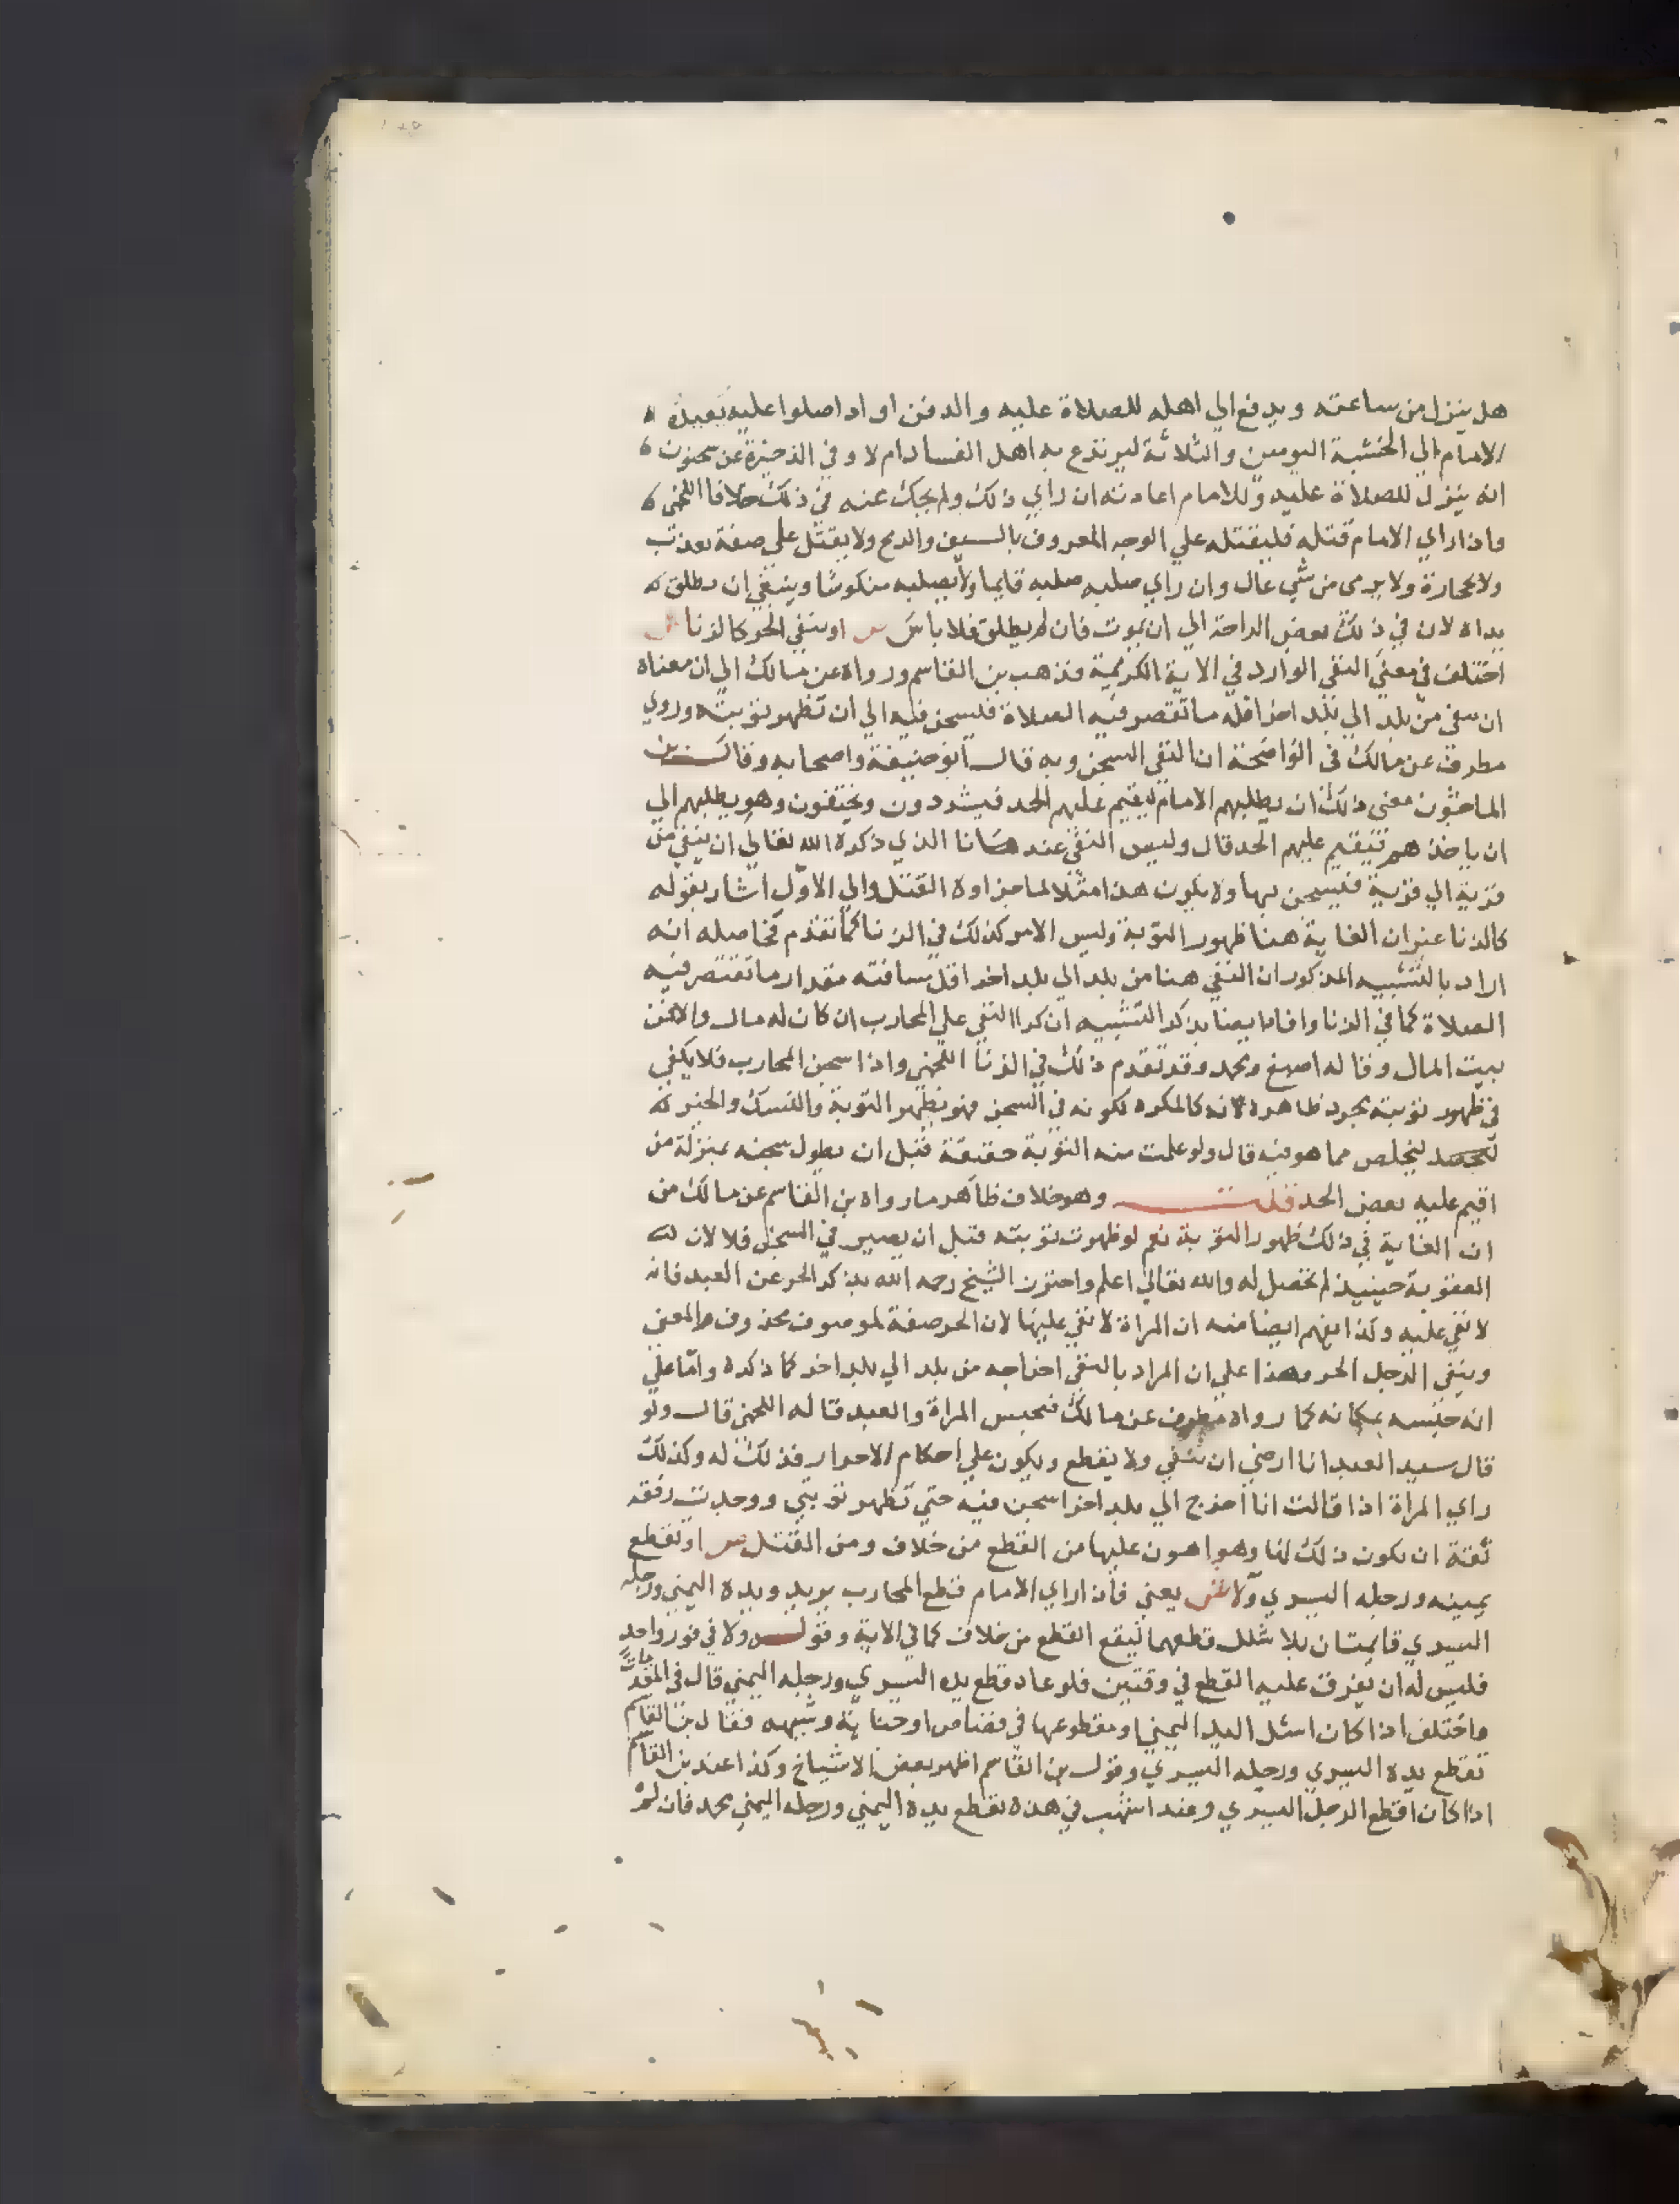 هل ينزل من ساعته ويدفع الي اهله للصلاة عليه والدفن او اذا صلوا عليه يعيده
الامام الي الخشبة اليومين والثلاثة ليرتدع به اهل الفساد ام لا وفي الذخيرة عن سحنون
انه ينزل للصلاة عليه وللامام اعادته ان راي ذلك ولم يحك عنه في ذلك خلافا اللخمي
واذا راي الامام قتله فليقتله علي الوجه المعروف بالسيف والرمح ولا يقتل علي صفة تعذيب
ولا بحجارة ولا يرمى من شي عال وان راي صلبه صلبه قايما ولا يصلبه منكوسا وينبغي ان يطلق
يداه لان في ذلك بعض الراحة الي ان يموت فان لم يطلق فلا باس ص او ينفي الحر كالزنا ش
اختلف في معني النفي الوارد في الاية الكريمة فذهب بن القاسم ورواه عن مالك الي ان معناه
ان ينفي من بلد الي بلد اخر اقله ما تقصر فيه الصلاة فيسجن فيه الي ان تظهر توبته وروي
مطرف عن مالك في الواضحة ان النفي السجن وبه قال ابو حنيفة واصحابه وقال بن
الماجشون معني ذلك ان يطلبهم الامام ليقيم عليهم الحد فيشردون ويختفون وهو يطلبهم الي
ان ياخذهم فيقيم عليهم الحد قال وليس النفي عندهانا الذي ذكره الله تعالي ان ينفي من
قرية الي قرية فيسجن بها ولا يكون هذا مثلا لما جزاوه القتل والي الاول اشار بقوله
كالزنا غير ان الغاية هنا ظهور التوبة وليس الامر كذلك في الزنا كما تقدم فحاصله انه
اراد بالتشبيه المذكور ان النفي هنا من بلد الي بلد اخر اقل مسافته مقدار ما تقتصر فيه
الصلاة كما في الزنا وافاد ايضا بذكر التشبيه ان كرا النفي علي المحارب ان كان له مال والا فمن
بيت المال وقاله اصبغ ومحمد وقد تقدم ذلك في الزنا اللخمي واذا سجن المحارب فلا يكفي
في ظهور توبته مجرد ظاهره لانه كالمكره لكونه في السجن فهو يظهر التوبة والنسك والخير
ليخلص مما هو فيه قال ولو علمت منه التوبة حقيقة قبل ان يطول سجنه بمنزلة من
اقيم عليه بعض الحد قلت وهو خلاف ظاهر ما رواه بن القاسم عن مالك من
ان الغاية في ذلك ظهور التوبة نعم لو ظهرت توبته قبل ان يصير في السجن فلا لان
العقوبة حينيذ لم تحصل له والله تعالي اعلم واحترز الشيخ رحمه الله بذكر الحر عن العبد فانه
لا نفي عليه وكذا يفهم ايضا منه ان المراة لا نفي عليها لان الحر صفة لموصوف محذوف والمعني
وينفي الرجل الحر وهذا علي ان المراد بالنفي اخراجه من بلد الي بلد اخر كما ذكره واما علي
انه حبسه بمكانه كما رواه مطرف عن مالك فتحبس المراة والعبد قاله اللخمي قال ولو
قال سيد العبد انا ارضي ان ينفي ولا يقطع ويكون علي احكام الاحرار فذلك له وكذلك
راي المراة اذا قالت انا اخرج الي بلد اخر اسجن فيه حتي تظهر توبتي ووجدت رفقة
ثقة ان يكون ذلك لها وهو اهون عليها من القطع من خلاف ومن القتل ص او تقطع
يمينه ورجله اليسري ولا ش يعني فان اراي الامام قطع المحارب يريد ويده اليمني ورجله
اليسري قايمتان بلا شلل قطعهما ليقع القطع من خلاف كما في الاية وقوله ولا في فور واحد
فليس له ان يفرق عليه القطع في وقتين فلو عاد قطع يده اليسري ورجله اليمني قال في المقدمات
واختلف اذا كان اشل اليد اليمني او مقطوعها في قصاص او جناية وشبهه فقال بن القاسم
تقطع يده اليسري ورجله اليسري وقول بن القاسم اظهر بعض الاشياخ وكذا عند بن القاسم
اذا كان اقطع الرجل اليسري وعند اشهب في هذه تقطع يده اليمني ورجله اليمني محمد فان لم